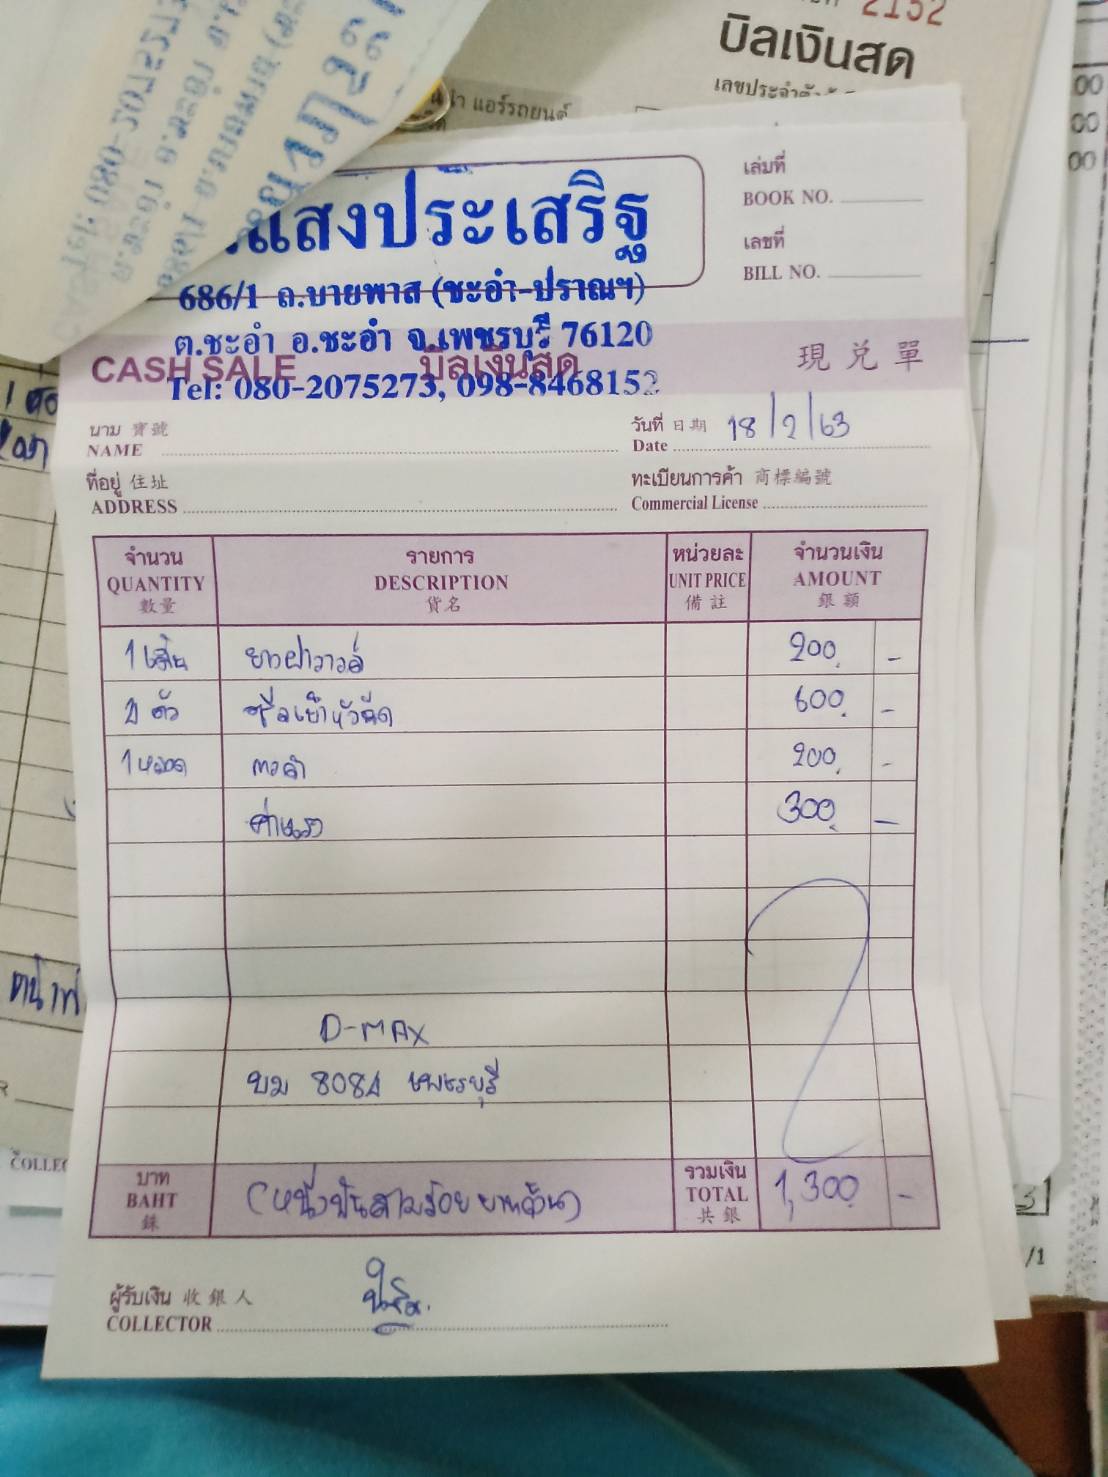 2152
บิลเงินสด
แอร์รถยนต์
แสงประเสริฐ
686/1 ถ.บายพาส (ชะอำ-ปราณฯ)
ต.ชะอำ อ.ชะอำ จ.เพชรบุรี 76120
Tel: 080-2075273, 098-8468152
เล่มที่
BOOK NO.
เลขที่
BILL NO.
CASH SALE บิลเงินสด 現兑單
นาม 寶號
NAME
วันที่ 日期 18/2/63
Date
ที่อยู่ 住址
ADDRESS
ทะเบียนการค้า 商標編號
Commercial License
จำนวน รายการ หน่วยละ จำนวนเงิน
QUANTITY DESCRIPTION UNIT PRICE AMOUNT
數量 貨名 備註 銀額
1 เส้น ยางฝาวาวล์ 200. -
2 ตัว ซีลเบ้าหัวฉีด 600. -
1 หลอด กาวดำ 200. -
ค่าแรง 300. -
D-MAX
บม 8084 เพชรบุรี
บาท
BAHT
銖
(หนึ่งพันสามร้อยบาทถ้วน)
รวมเงิน
TOTAL 1,300 -
共銀
ผู้รับเงิน 收銀人
COLLECTOR